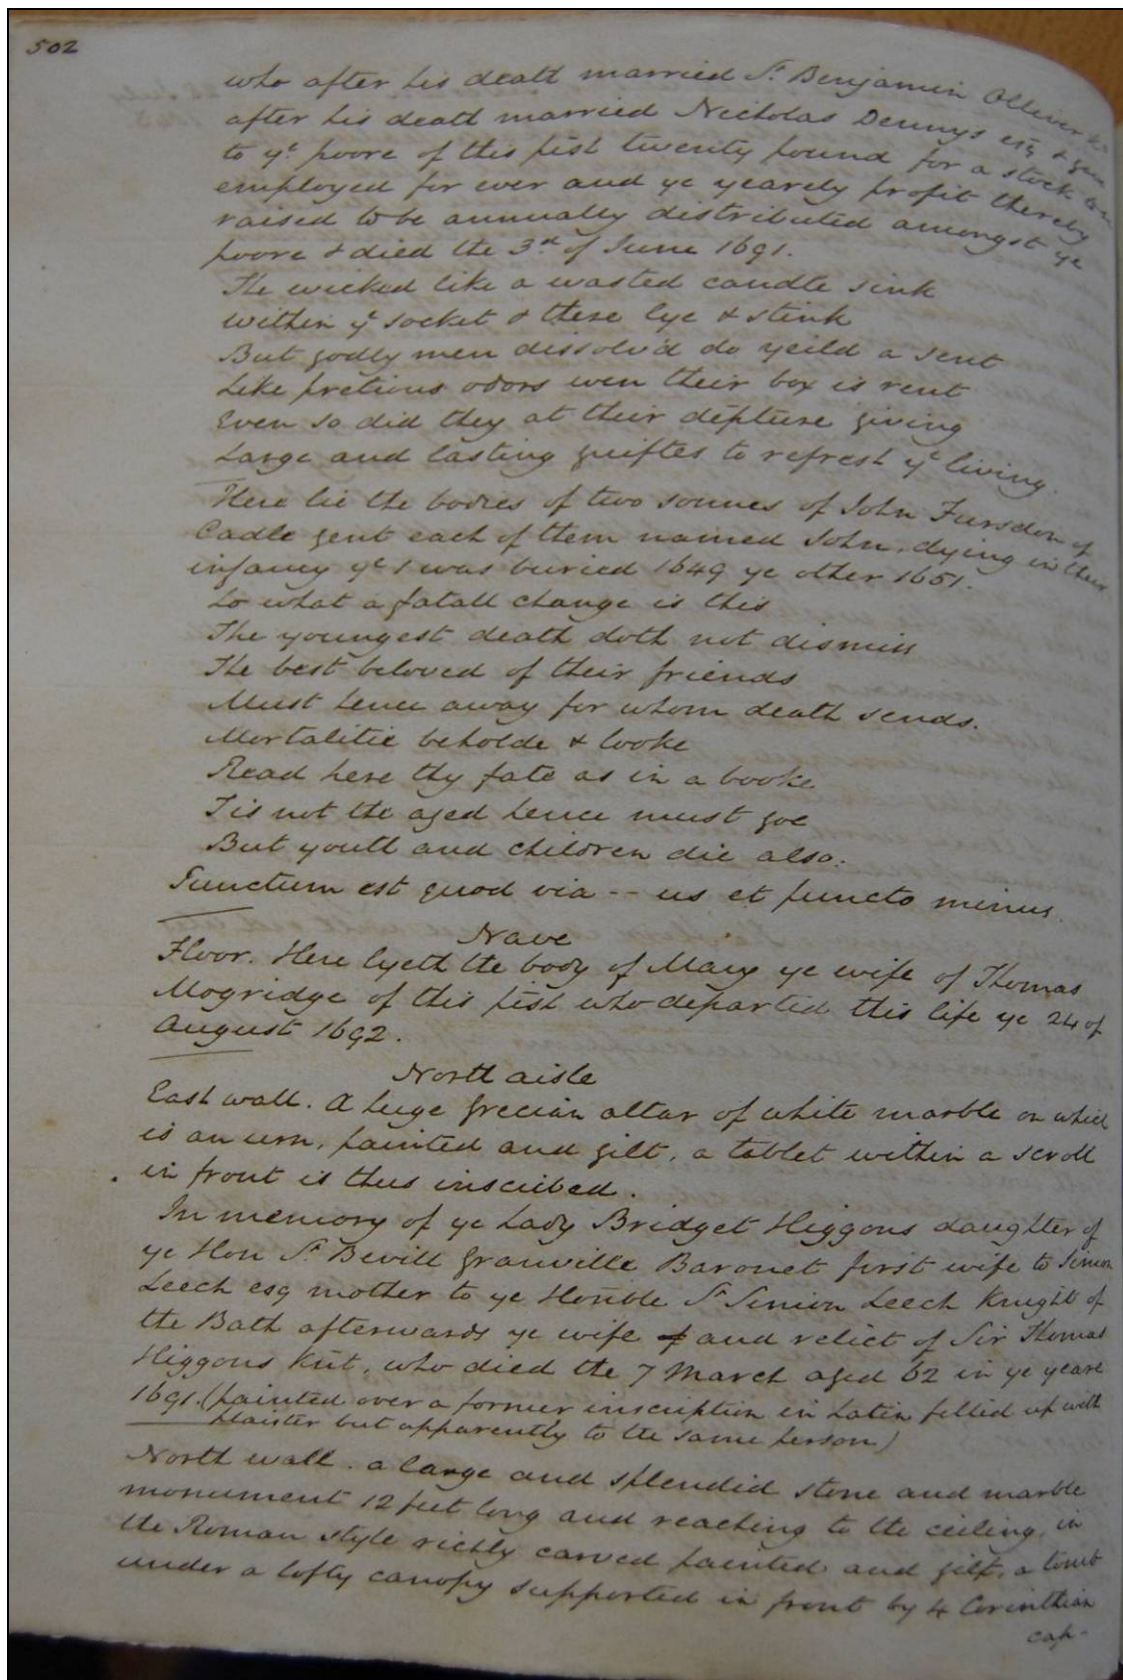 502
who after his death married Sr. Benjamin Olliver
after his death married Nicholas Dennys esq & gave
to ye poore of this pish twenty pound for a stock to be
employed for ever and ye yearely profit thereby
raised to be annually distributed amongst ye
poore & died the 3rd of June 1691.
The wicked like a wasted candle sink
within ye socket & there lye & stink
But godly men dissolv'd do yeild a sent
Like pretious odors wen their box is rent
Even so did they at their depture giving
Large and lasting guiftes to refresh ye living.
Here lie the bodies of two sonnes of John Fursdon of
Cadle gent each of them named John, dying in their
infancy ye 1 was buried 1649 ye other 1651.
Lo what a fatall change is this
The youngest death doth not dismiss
The best beloved of their friends
Must hence away for whom death sends.
Mortalitie beholde & looke
Read here thy fate as in a booke
Tis not the aged hence must goe
But youth and children die also.
Punctum est quod via -- us et puncto minus.
Nave
Floor. Here lyeth the body of Mary ye wife of Thomas
Mogridge of this pish who departed this life ye 24 of
August 1692.
North aisle
East wall. A huge Grecian altar of white marble on which
is an urn, painted and gilt, a tablet within a scroll
in front is thus inscribed.
In memory of ye Lady Bridget Higgons daughter of
ye Hon Sr. Bevill Granville Baronet first wife to Simon
Leech esq mother to ye Honble Sr Simon Leech Knight of
the Bath afterwards ye wife of and relict of Sir Thomas
Higgons Knt, who died the 7 March aged 62 in ye yeare
1691. (painted over a former inscription in Latin filled up with
plaister but apparently to the same person)
North wall. a large and splendid stone and marble
monument 12 feet long and reaching to the ceiling, in
the Roman style richly carved painted and gilt, a tomb
under a lofty canopy supported in front by 4 Corinthian
cap-